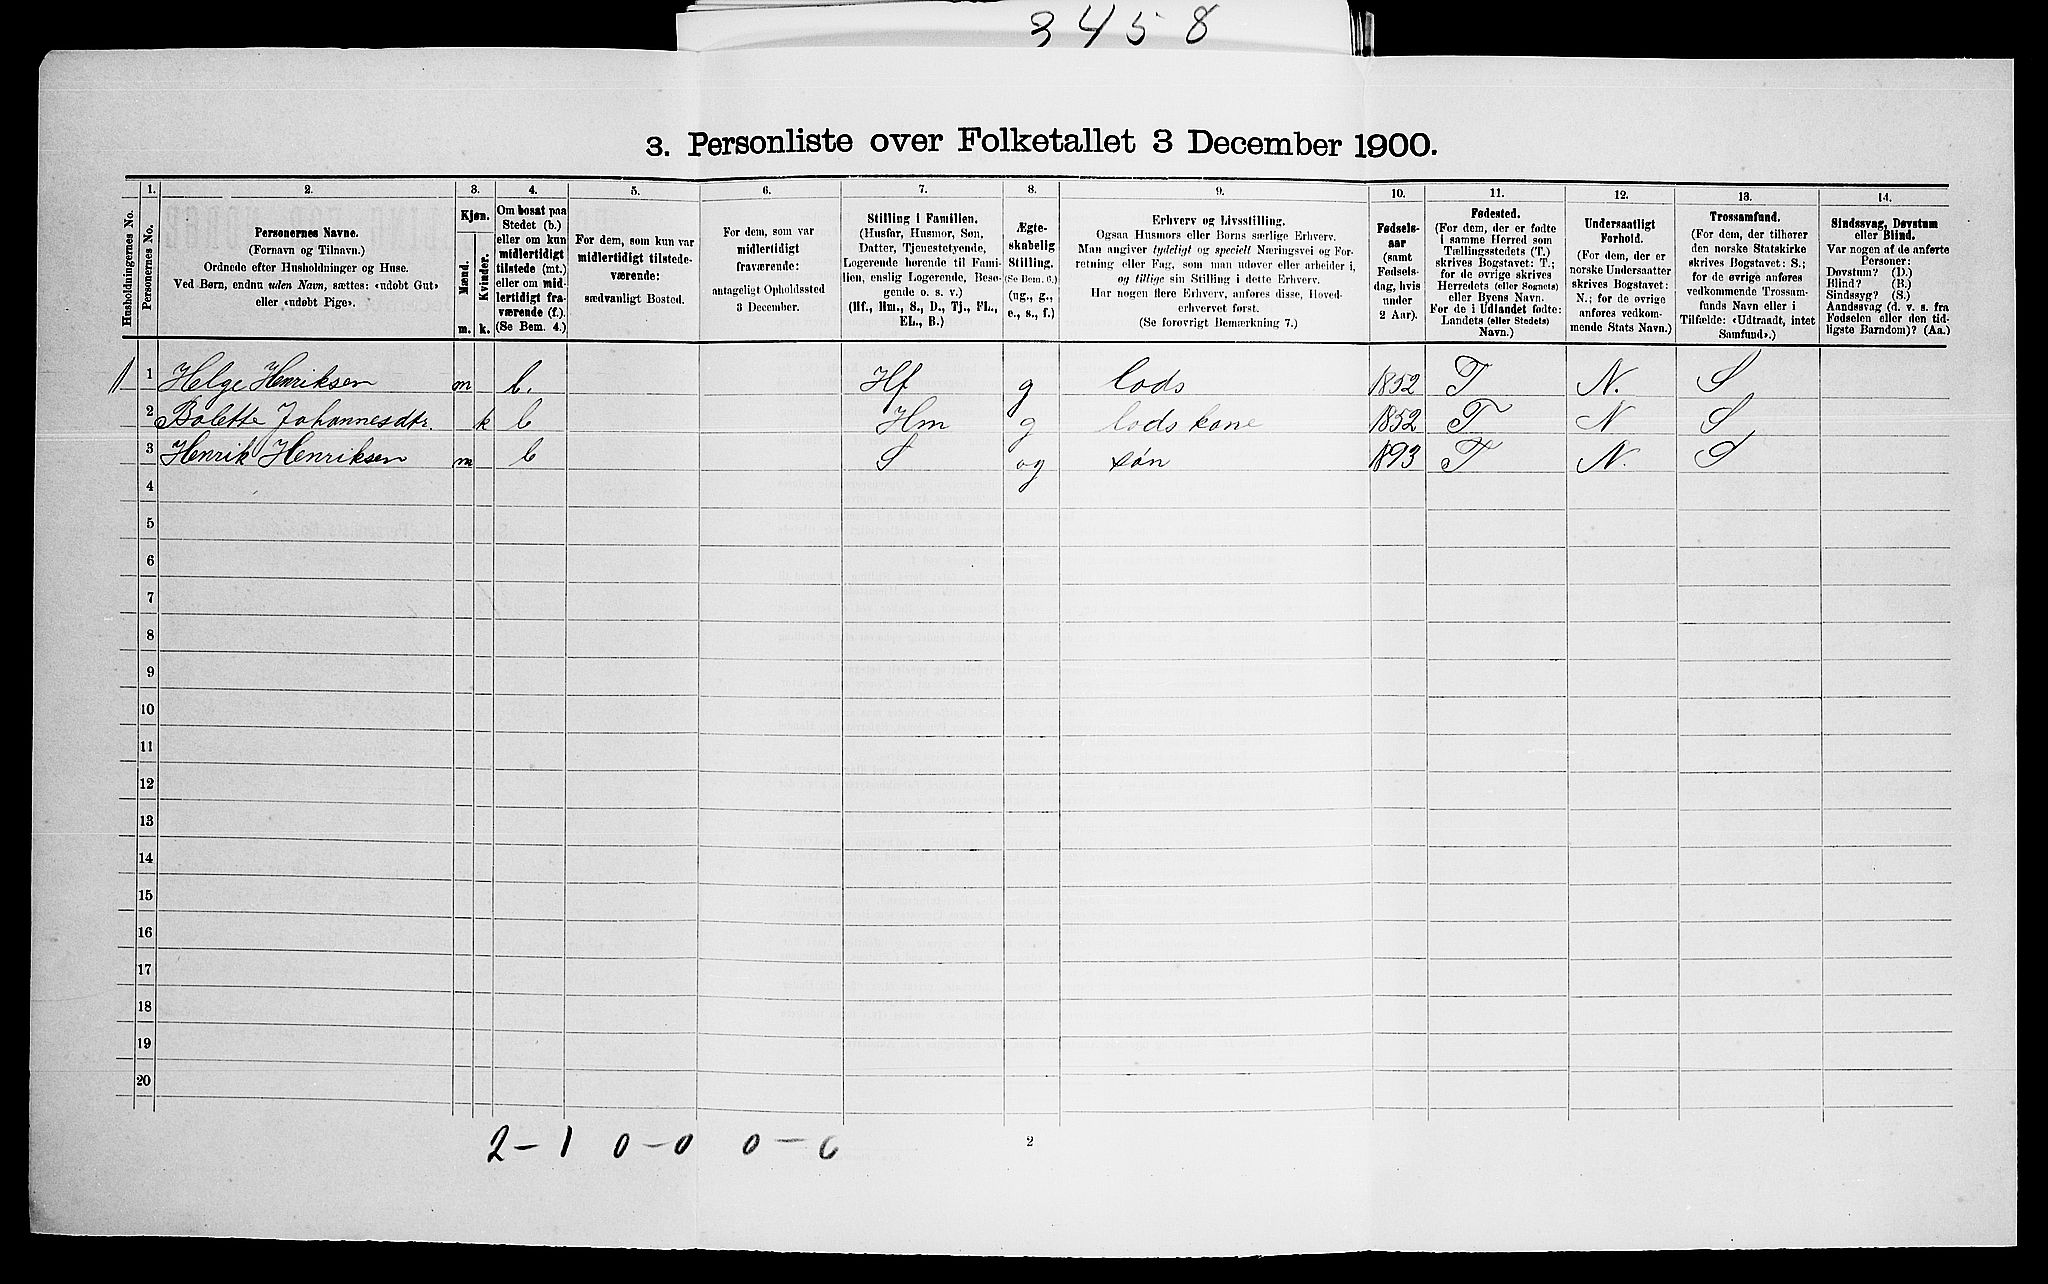 3458
3. Personliste over Folketallet 3 December 1900.
1. 2. 3. 4. 5. 6. 7. 8. 9. 10. 11. 12. 13. 14.
Husholdningernes No.
Personernes No.
Personernes Navne.
(Fornavn og Tilnavn.)
Ordnede efter Husholdninger og Huse.
Ved Børn, endnu uden Navn, sættes: «udøbt Gut»
eller «udøbt Pige».
Kjøn.
Mænd.
Kvinder.
m. k.
Om bosat paa
Stedet (b.)
eller om kun
midlertidigt
tilstede (mt.)
eller om mid-
lertidigt fra-
værende (f.)
(Se Bem. 4.)
For dem, som kun var
midlertidigt tilstede-
værende:
sædvanligt Bosted.
For dem, som var
midlertidigt
fraværende:
antageligt Opholdssted
3 December.
Stilling i Familien.
(Husfar, Husmor, Søn,
Datter, Tjenestetyende,
Logerende hørende til Fami-
lien, enslig Logerende, Besø-
gende o. s. v.)
(Hf., Hm., S., D., Tj., FL.,
EL., B.)
Ægte-
skabelig
Stilling.
(Se Bem. 6.)
(ug., g.,
e., s., f.)
Erhverv og Livsstilling.
Ogsaa Husmors eller Børns særlige Erhverv.
Man angiver tydeligt og specielt Næringsvei og For-
retning eller Fag, som man udøver eller arbeider i,
og tillige sin Stilling i dette Erhverv.
Har nogen flere Erhverv, anføres disse, Hoved-
erhvervet først.
(Se forøvrigt Bemærkning 7.)
Fødsels-
aar
(samt
Fødsels-
dag, hvis
under
2 Aar).
Fødested.
(For dem, der er fødte
i samme Herred som
Tællingsstedets (T.)
skrives Bogstavet: T.;
for de øvrige skrives
Herredets (eller Sognets)
eller Byens Navn.
For de i Udlandet fødte:
Landets (eller Stedets)
Navn.)
Undersaatligt
Forhold.
(For dem, der er
norske Undersaatter
skrives Bogstavet:
N.; for de øvrige
anføres vedkom-
mende Stats Navn.)
Trossamfund.
(For dem, der tilhører
den norske Statskirke
skrives Bogstavet: S.;
for de øvrige anføres
vedkommende Trossam-
funds Navn eller i
Tilfælde: «Udtraadt, intet
Samfund».)
Sindssvag, Døvstum
eller Blind.
Var nogen af de anførte
Personer:
Døvstum? (D.)
Blind? (B.)
Sindssyg? (S.)
Aandssvag (d. v. s. fra
Fødselen eller den tid-
ligste Barndom)? (Aa.)
1 Helge Henriksen m b. Hf g lods 1852 T N. S
2 Bolette Johannesdtr. k b Hm g lods kone 1852 T N S
3 Henrik Henriksen m b S ug søn 1893 T N. S
4
5
6
7
8
9
10
11
12
13
14
15
16
17
18
19
20
2-1 0-0 0-0
2